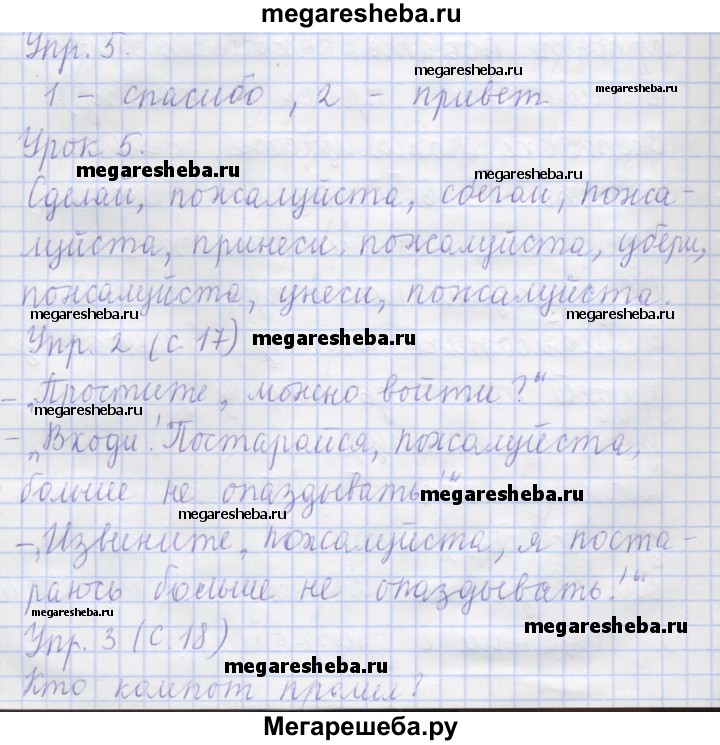 megaresheba.ru
Упр. 5.
megaresheba.ru
1 - спасибо, 2 - привет
megaresheba.ru
Урок 5.
megaresheba.ru
megaresheba.ru
Сделай, пожалуйста, сбегай, пожа-
луйста, принеси, пожалуйста, убери,
пожалуйста, унеси, пожалуйста.
megaresheba.ru
megaresheba.ru
Упр. 2 (с. 17)
megaresheba.ru
- „Простите, можно войти?“
megaresheba.ru
- „Входи! Постарайся, пожалуйста,
больше не опаздывать!“
megaresheba.ru
megaresheba.ru
- „Извините, пожалуйста, я поста-
раюсь больше не опаздывать!“
megaresheba.ru
Упр. 3 (с. 18)
megaresheba.ru
megaresheba.ru
Кто компот пролил?
Мегарешеба.ру